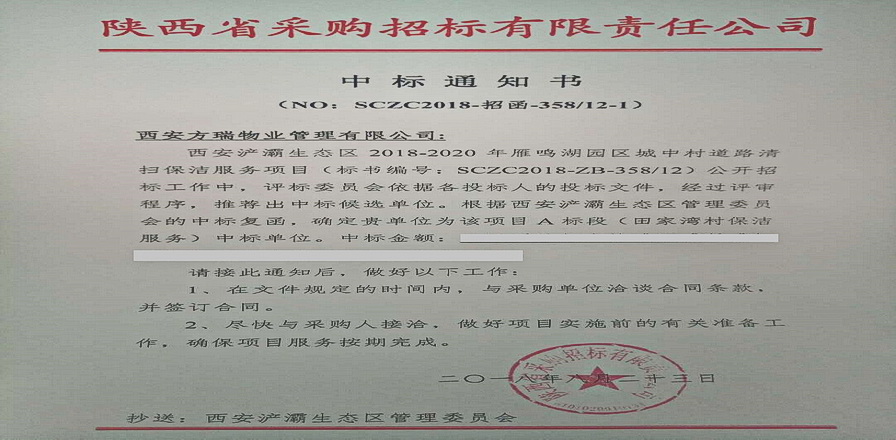 陕西省采购招标有限责任公司
中标通知书
（NO：SCZC2018-招函-358/12-1）
西安方瑞物业管理有限公司：
西安浐灞生态区 2018-2020 年雁鸣湖园区城中村道路清
扫保洁服务项目（标书编号：SCZC2018-ZB-358/12）公开招
标工作中，评标委员会依据各投标人的投标文件，经过评审
程序，推荐出中标候选单位。根据西安浐灞生态区管理委员
会的中标复函，确定贵单位为该项目 A 标段（田家湾村保洁
服务）中标单位。中标金额：
请接此通知后，做好以下工作：
1、在文件规定的时间内，与采购单位洽谈合同条款，
并签订合同。
2、尽快与采购人接洽，做好项目实施前的有关准备工
作，确保项目服务按期完成。
二〇一八年八月二十三日
抄送：西安浐灞生态区管理委员会